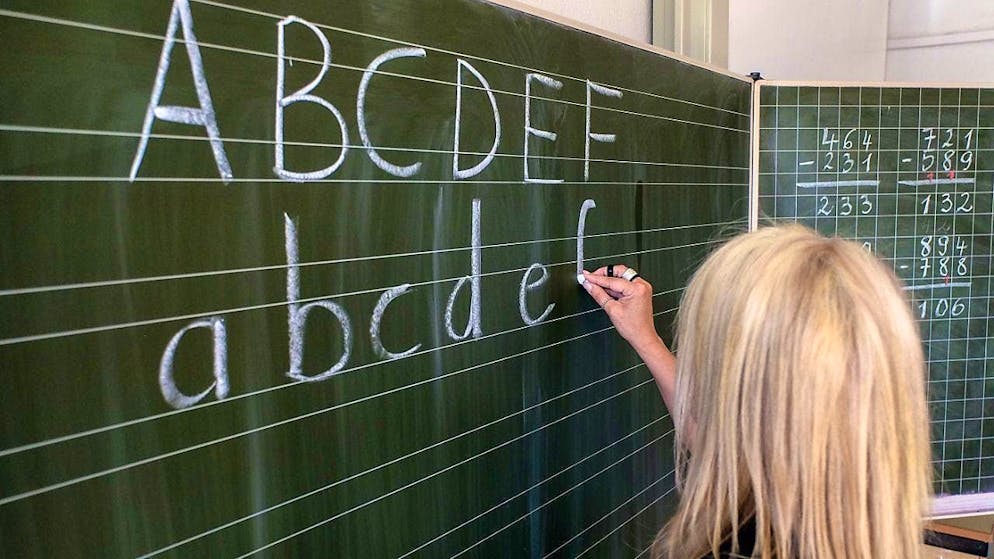 A B C D E F
a b c d e f
464
- 231
233
721
- 589
132
894
- 788
106